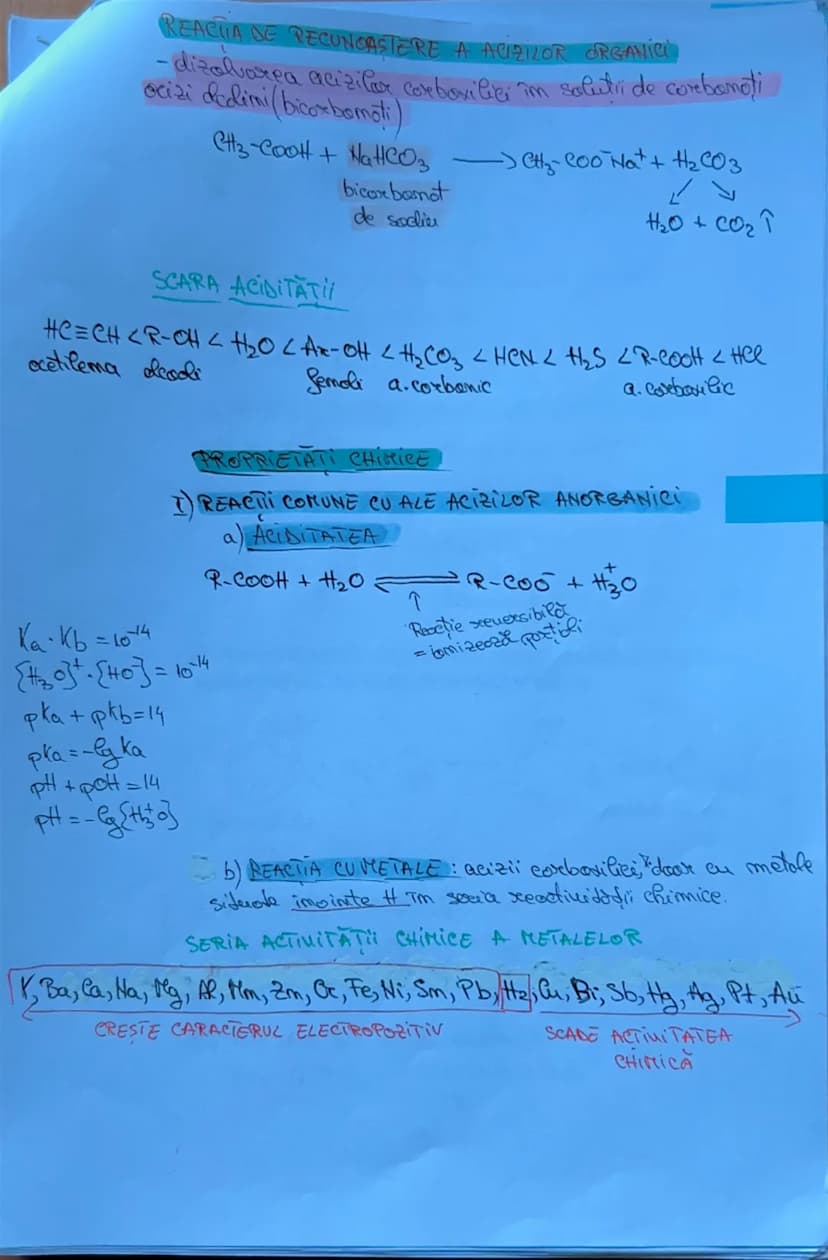 REACȚIA DE RECUNOAȘTERE A ACIZILOR ORGANICI
- dizolvarea acizilor carboxilici în soluții de carbonați
acizi alcalini (bicarbonați)
CH3-COOH + NaHCO3 ⟶ CH3-COO⁻Na⁺ + H2CO3
bicarbonat
de sodiu
↙ ↘
H2O + CO2↑
SCARA ACIDITĂȚII
HC≡CH < R-OH < H2O < Ar-OH < H2CO3 < HCN < H2S < R-COOH < HCl
acetilena alcooli fenoli a. carbonic a. carboxilic
PROPRIETĂȚI CHIMICE
I) REACȚII COMUNE CU ALE ACIZILOR ANORGANICI
a) ACIDITATEA
R-COOH + H2O ⇌ R-COO⁻ + H3⁺O
↑
Reacție reversibilă
= ionizează parțial
Ka · Kb = 10⁻¹⁴
[H3O]⁺ · [HO⁻] = 10⁻¹⁴
pka + pkb = 14
pka = -lg ka
pH + pOH = 14
pH = -lg[H3⁺O]
b) REACȚIA CU METALE : acizii carboxilici, doar cu metale
situate înainte H în seria reactivității chimice.
SERIA ACTIVITĂȚII CHIMICE A METALELOR
K, Ba, Ca, Na, Mg, Al, Mn, Zn, Cr, Fe, Ni, Sn, Pb, H2, Cu, Bi, Sb, Hg, Ag, Pt, Au
CREȘTE CARACTERUL ELECTROPOZITIV
SCADE ACTIVITATEA
CHIMICĂ